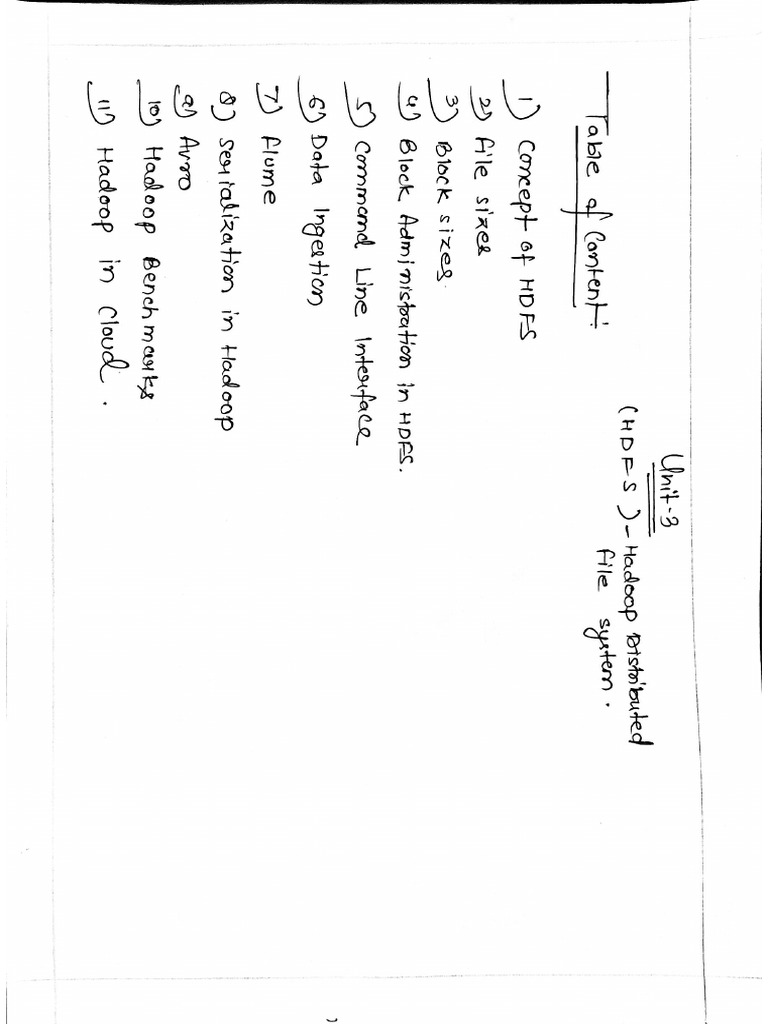 Unit-3
(HDFS) - Hadoop Distributed
file system.
Table of Content:
1) Concept of HDFS
2) file sizes
3) Block sizes.
4) Block Administration in HDFS.
5) Command Line Interface
6) Data Ingestion
7) flume
8) Serialization in Hadoop
9) Avro
10) Hadoop Benchmarks
11) Hadoop in Cloud.